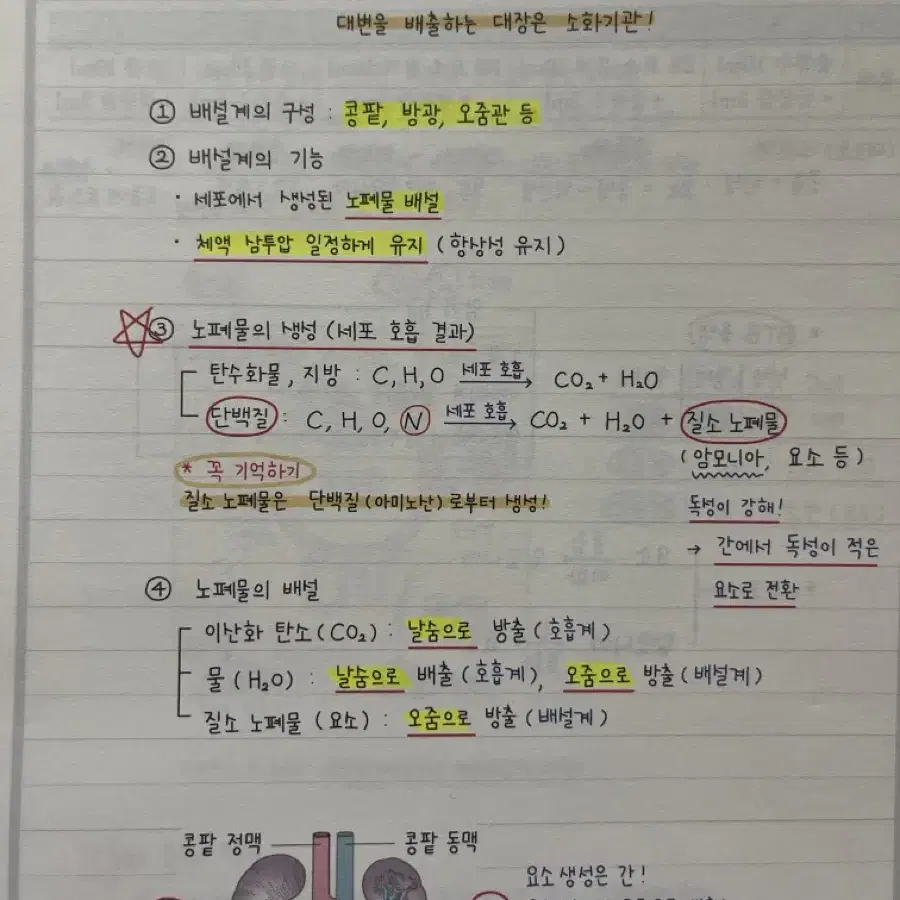 대변을 배출하는 대장은 소화기관!
① 배설계의 구성 : 콩팥, 방광, 오줌관 등
② 배설계의 기능
· 세포에서 생성된 노폐물 배설
· 체액 삼투압 일정하게 유지 (항상성 유지)
☆③ 노폐물의 생성 (세포 호흡 결과)
탄수화물, 지방 : C, H, O 세포 호흡→ CO₂ + H₂O
단백질 : C, H, O, N 세포 호흡→ CO₂ + H₂O + 질소 노폐물
(암모니아, 요소 등)
* 꼭 기억하기
질소 노폐물은 단백질(아미노산)로부터 생성!
독성이 강해!
→ 간에서 독성이 적은
요소로 전환
④ 노폐물의 배설
이산화 탄소(CO₂) : 날숨으로 방출(호흡계)
물(H₂O) : 날숨으로 배출(호흡계), 오줌으로 방출(배설계)
질소 노폐물(요소) : 오줌으로 방출(배설계)
콩팥 정맥
콩팥 동맥
요소 생성은 간!